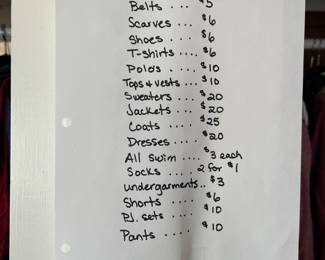 Belts ... $5
Scarves .... $6
Shoes .... $6
T-shirts .... $6
Polos ..... $10
Tops & vests ... $10
Sweaters .... $20
Jackets .... $20
Coats .... $25
Dresses .... $20
All swim .... $3 each
Socks .... 2 for $1
undergarments.. $3
Shorts .... $6
P.J. sets .... $10
Pants .... $10